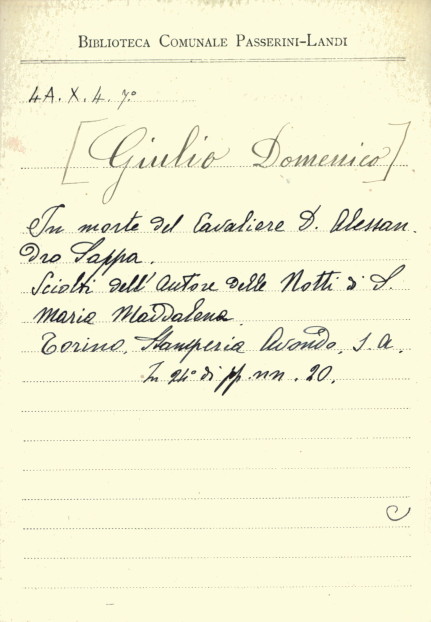 BIBLIOTECA COMUNALE PASSERINI-LANDI
4A. X. 4. 7.º
[Giulio Domenico]
In morte del Cavaliere D. Alessan-
dro Sappa.
Sciolti dell'Autore delle Notti di S.
Maria Maddalena.
Torino, Stamperia Avondo, s. a.
In 24º di pp. nn. 20.